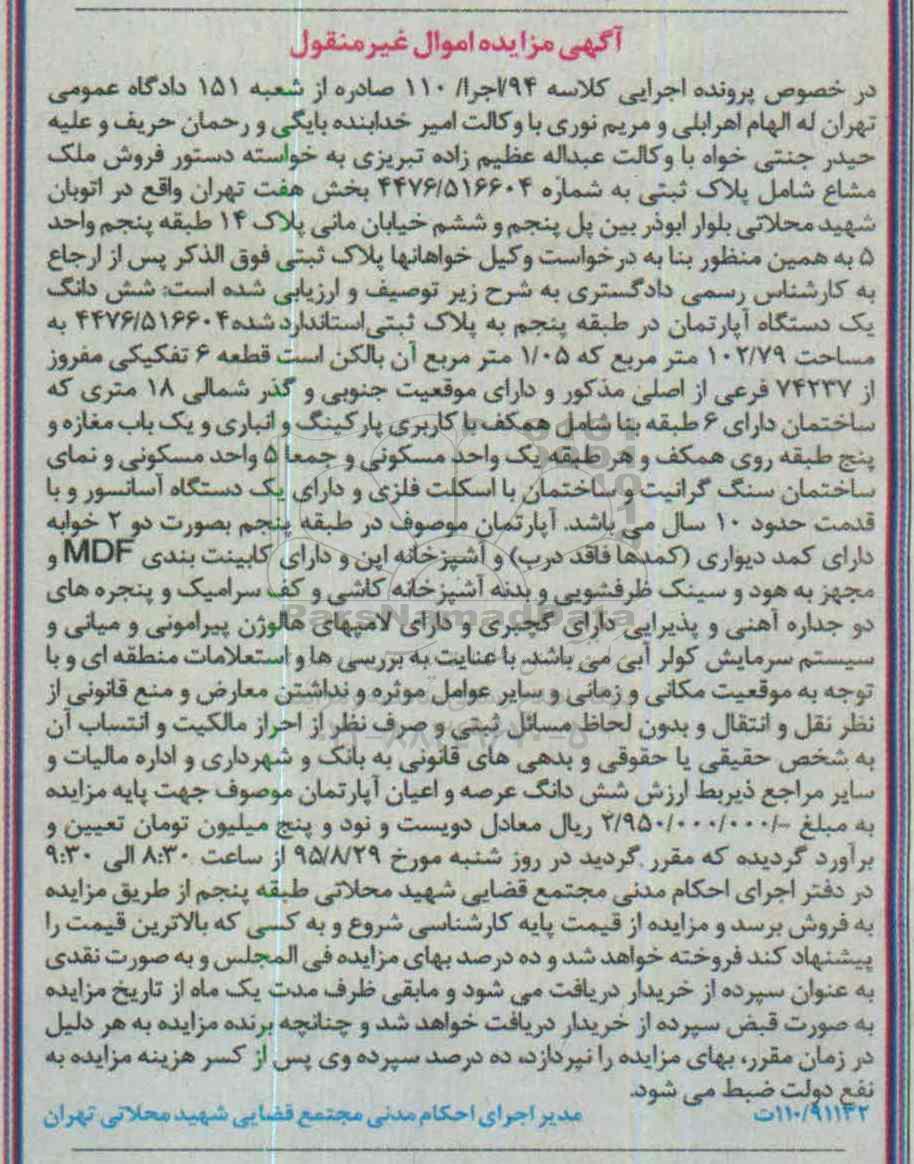 آگهی مزایده اموال غیرمنقول
در خصوص پرونده اجرایی کلاسه ۹۴/اجرا/ ۱۱۰ صادره از شعبه ۱۵۱ دادگاه عمومی
تهران له الهام اهرابلی و مریم نوری با وکالت امیر خدابنده بایگی و رحمان حریف و علیه
حیدر جنتی خواه با وکالت عبداله عظیم زاده تبریزی به خواسته دستور فروش ملک
مشاع شامل پلاک ثبتی به شماره ۴۴۷۶/۵۱۶۶۰۴ بخش هفت تهران واقع در اتوبان
شهید محلاتی بلوار ابوذر بین پل پنجم و ششم خیابان مانی پلاک ۱۴ طبقه پنجم واحد
۵ به همین منظور بنا به درخواست وکیل خواهانها پلاک ثبتی فوق الذکر پس از ارجاع
به کارشناس رسمی دادگستری به شرح زیر توصیف و ارزیابی شده است: شش دانگ
یک دستگاه آپارتمان در طبقه پنجم به پلاک ثبتی استاندارد شده ۴۴۷۶/۵۱۶۶۰۴ به
مساحت ۱۰۲/۷۹ متر مربع که ۱/۰۵ متر مربع آن بالکن است قطعه ۶ تفکیکی مفروز
از ۷۴۲۳۷ فرعی از اصلی مذکور و دارای موقعیت جنوبی و گذر شمالی ۱۸ متری که
ساختمان دارای ۶ طبقه بنا شامل همکف با کاربری پارکینگ و انباری و یک باب مغازه و
پنج طبقه روی همکف و هر طبقه یک واحد مسکونی و جمعا ۵ واحد مسکونی و نمای
ساختمان سنگ گرانیت و ساختمان با اسکلت فلزی و دارای یک دستگاه آسانسور و با
قدمت حدود ۱۰ سال می باشد. آپارتمان موصوف در طبقه پنجم بصورت دو ۲ خوابه
دارای کمد دیواری (کمدها فاقد درب) و آشپزخانه اپن و دارای کابینت بندی MDF و
مجهز به هود و سینک ظرفشویی و بدنه آشپزخانه کاشی و کف سرامیک و پنجره های
دو جداره آهنی و پذیرایی دارای گچبری و دارای لامپهای هالوژن پیرامونی و میانی و
سیستم سرمایش کولر آبی می باشد. با عنایت به بررسی ها و استعلامات منطقه ای و با
توجه به موقعیت مکانی و زمانی و سایر عوامل موثره و نداشتن معارض و منع قانونی از
نظر نقل و انتقال و بدون لحاظ مسائل ثبتی و صرف نظر از احراز مالکیت و انتساب آن
به شخص حقیقی یا حقوقی و بدهی های قانونی به بانک و شهرداری و اداره مالیات و
سایر مراجع ذیربط ارزش شش دانگ عرصه و اعیان آپارتمان موصوف جهت پایه مزایده
به مبلغ -/۲/۹۵۰/۰۰۰/۰۰۰ ریال معادل دویست و نود و پنج میلیون تومان تعیین و
برآورد گردیده که مقرر گردید در روز شنبه مورخ ۹۵/۸/۲۹ از ساعت ۸:۳۰ الی ۹:۳۰
در دفتر اجرای احکام مدنی مجتمع قضایی شهید محلاتی طبقه پنجم از طریق مزایده
به فروش برسد و مزایده از قیمت پایه کارشناسی شروع و به کسی که بالاترین قیمت را
پیشنهاد کند فروخته خواهد شد و ده درصد بهای مزایده فی المجلس و به صورت نقدی
به عنوان سپرده از خریدار دریافت می شود و مابقی ظرف مدت یک ماه از تاریخ مزایده
به صورت قبض سپرده از خریدار دریافت خواهد شد و چنانچه برنده مزایده به هر دلیل
در زمان مقرر، بهای مزایده را نپردازد، ده درصد سپرده وی پس از کسر هزینه مزایده به
نفع دولت ضبط می شود.
۱۱۰/۹۱۱۳۲ت مدیر اجرای احکام مدنی مجتمع قضایی شهید محلاتی تهران
ParsNamadData